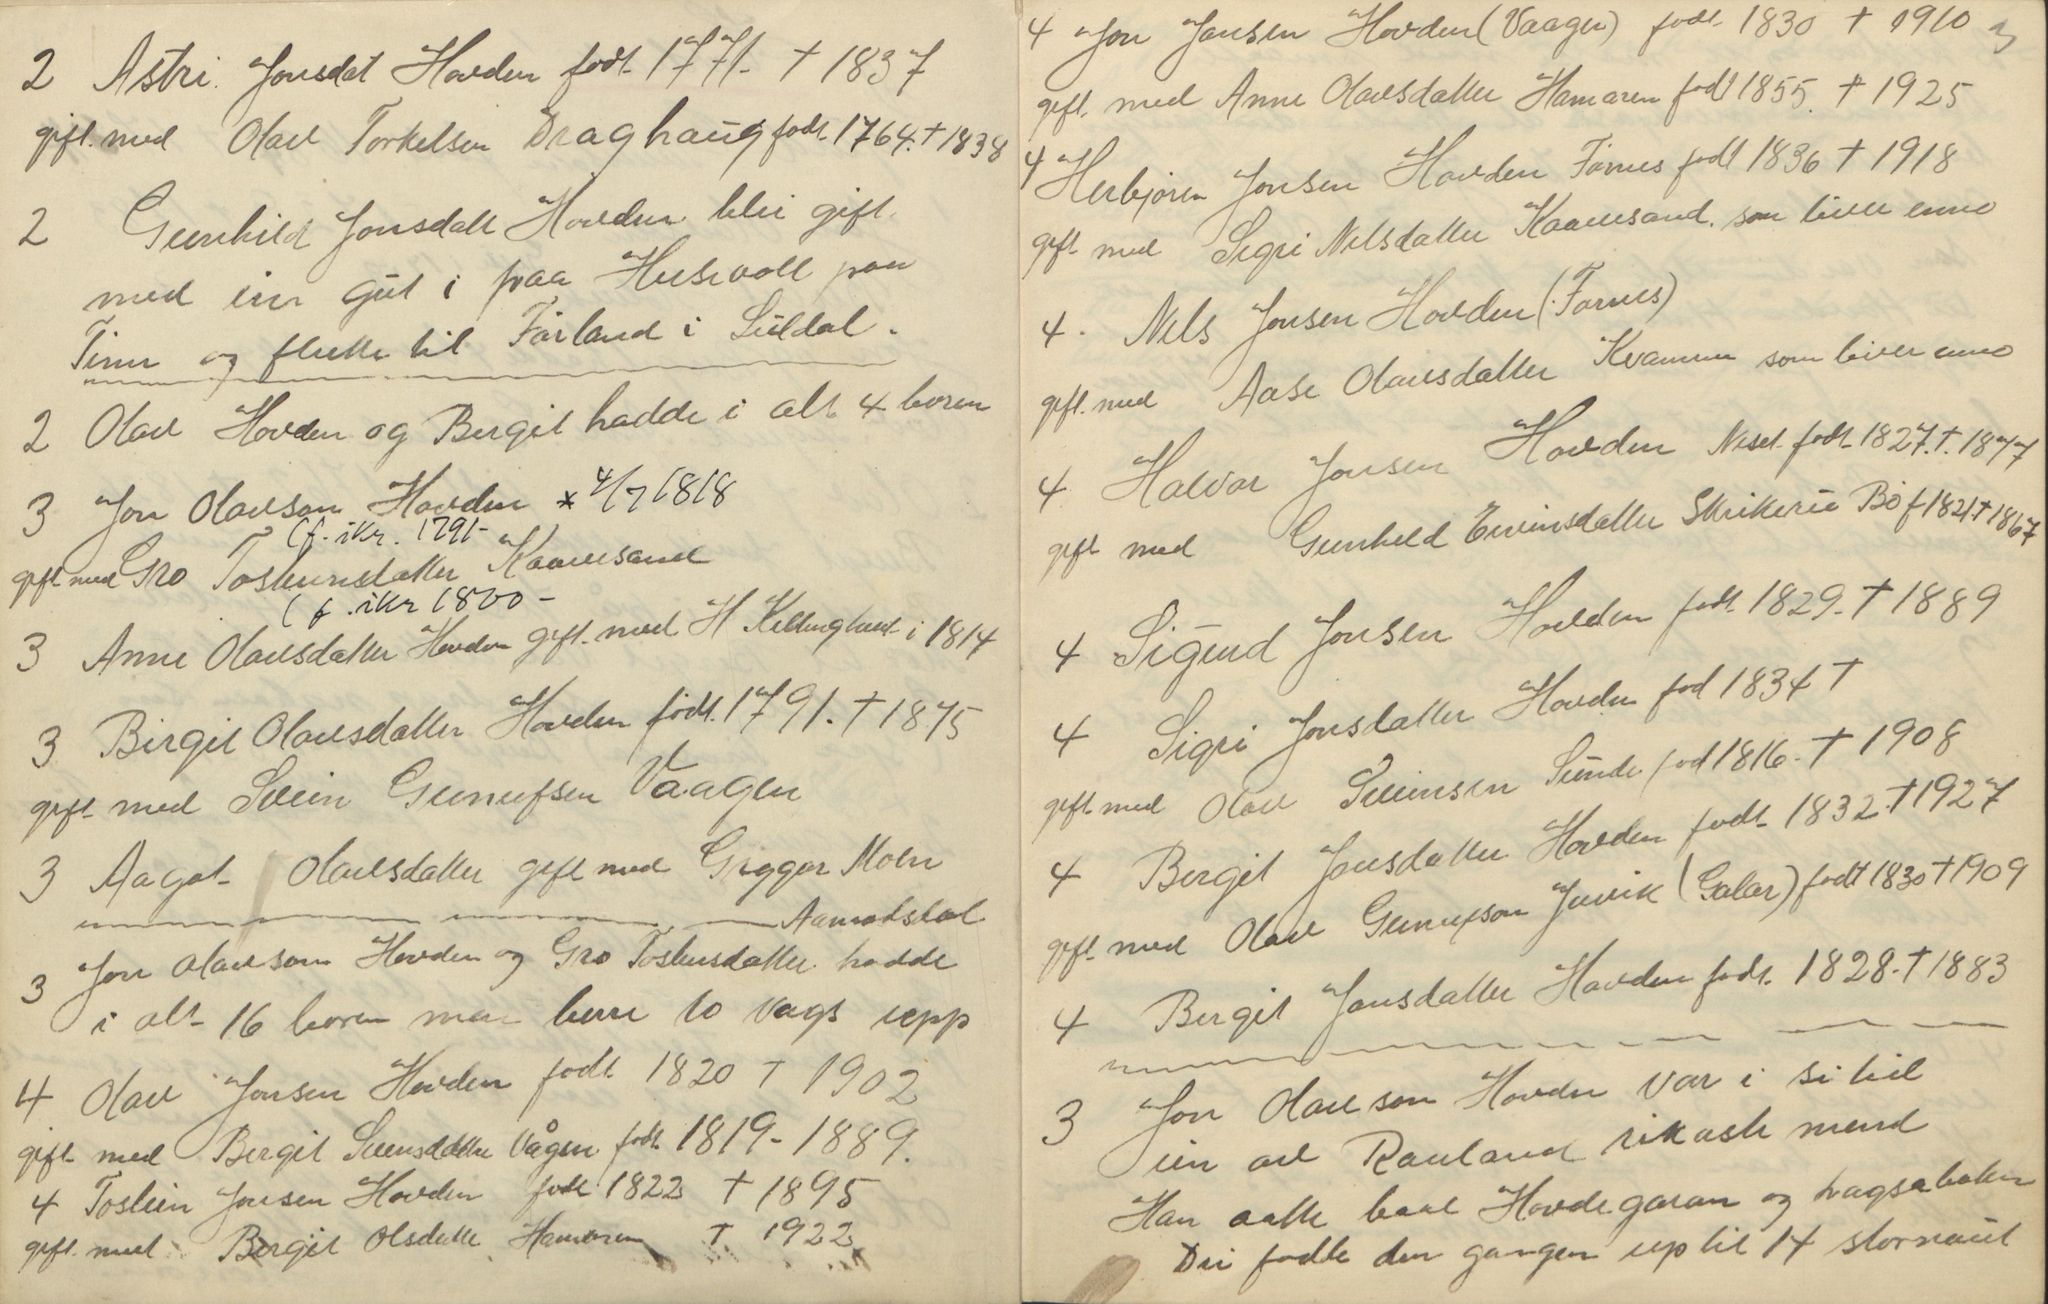 2 Astri Jonsdat Hovden født 1771. † 1837
gift. med Olav Torkelsen Draghaug født. 1764. † 1838
2 Gunhild Jonsdatt Hovden blei gift
med ein gut i fraa Husevoll paa
Tinn og flutte til Førland i Suldal.
2 Olav Hovden og Bergit hadde i alt 4 boren
3 Jon Olavson Hovden * 4/7 1818
(f. ikr. 1791-
gift med Gro Tosteinsdatter Kaavesand
(f. ikr 1800-
3 Anne Olavsdatter Hovden gift med H Kellinghaut i 1814
3 Birgit Olavsdatter Hovden født. 1791. † 1875
gift med Svein Gunnufsen Vaagen
3 Aagot Olavsdatter gift med Greggar Moen
Aamotsdal
3 Jon Olavson Hovden og Gro Tosteinsdatter hadde
i alt 16 boren men berre 10 vags upp
4 Olav Jonsen Hovden født 1820 † 1902
gift med Bergit Sveinsdatter Vågen født 1819-1889.
4 Tostein Jonsen Hovden født 1822 † 1895
gift. med Bergit Olsdatte Hamaren † 1922
4 Jon Jonsen Hovden (Vaagen) født 1830 † 1910 3
gift. med Anne Olavsdatter Hamaren født 1855. † 1925
4 Herbjørn Jonsen Hovden Førnes født 1836 † 1918
gift med Sigri Nilsdatter Kaavesand. som liver enno
4. Nils Jonsen Hovden (Førnes)
gift. med Aase Olavsdatter Kvammen som liver enno
4 Halvor Jonsen Hovden Neset født 1827. † 1877
gift med Gunhild Eivinsdatter Skrikerie Bø f 1821 † 1867
4 Sigurd Jonsen Hovden født 1829. † 1889
4 Sigri Jonsdatter Hovden fød 1834 †
gift med Olav Sveinsen Sunde fød 1816. † 1908
4 Bergit Jonsdatter Hovden født 1832. † 1927
gift med Olav Gunnufson Juvik (Galar) født 1830 † 1909
4 Bergit Jonsdatter Hovden født. 1828. † 1883
3 Jon Olavson Hovden var i si tid
ein av Rauland rikaste menn
Han aatte baae Hovdegaran og hagsabaken
Dei fødte den gangen up til 14 stornaut